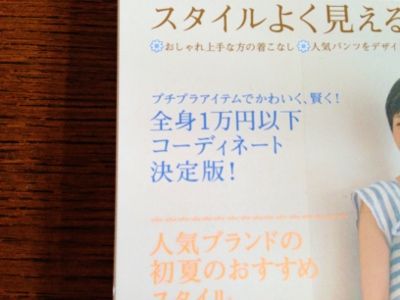 スタイルよく見える
おしゃれ上手な方の着こなし 人気パンツをデザイ
プチプラアイテムでかわいく、賢く!
全身1万円以下
コーディネート
決定版!
人気ブランドの
初夏のおすすめ
スタイル